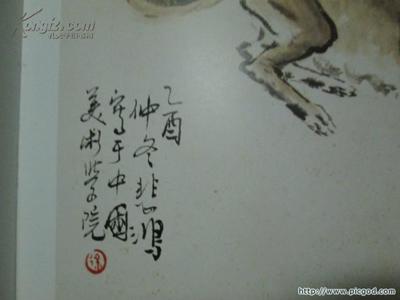 乙酉
仲冬悲鸿
写于中國
美術学院
徐
Kongfz.com
http://www.picgod.com